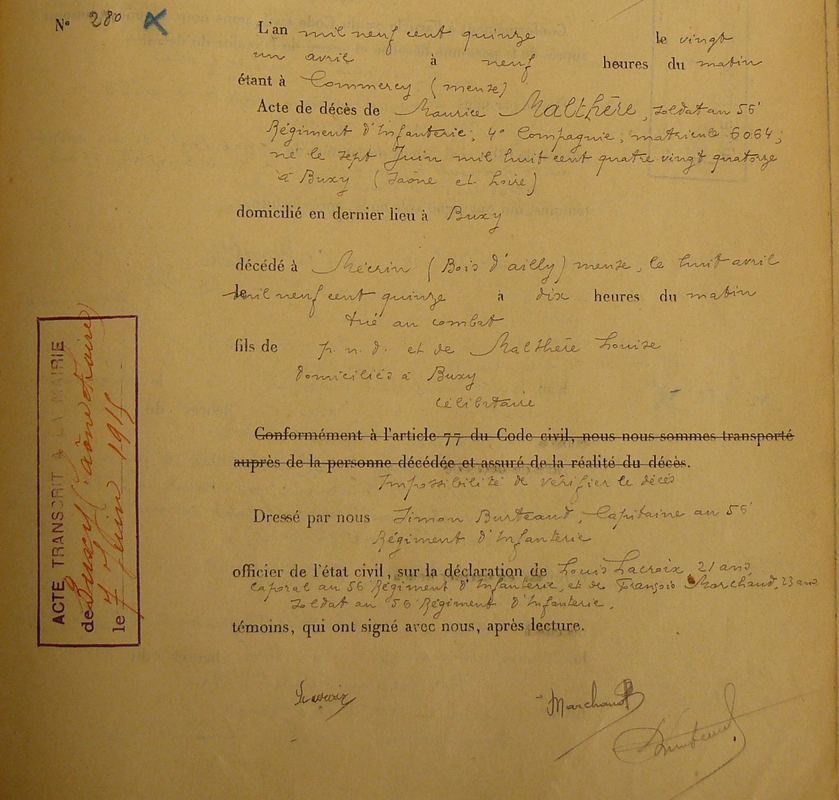 N° 280
L'an mil neuf cent quinze le vingt
un avril à neuf heures du matin
étant à Commercy (meuse)
Acte de décès de Maurice Malthère, soldat au 56e
Régiment d'Infanterie, 4e Compagnie, matricule 6064;
né le sept Juin mil huit cent quatre vingt quatorze
à Buxy (Saône et Loire)
domicilié en dernier lieu à Buxy
décédé à Mécrin (Bois d'ailly) meuse, le huit avril
le mil neuf cent quinze à dix heures du matin
tué au combat
fils de p. n. d. et de Malthère Louise
domiciliés à Buxy
célibataire
Conformément à l'article 77 du Code civil, nous nous sommes transporté
auprès de la personne décédée et assuré de la réalité du décès.
Impossibilité de vérifier le décès
Dressé par nous Simon Burteaud, Capitaine au 56e
Régiment d'Infanterie
officier de l'état civil, sur la déclaration de Louis Lacroix 21 ans
Caporal au 56 Régiment d'Infanterie, et de François Marchaud, 23 ans
Soldat au 56 Régiment d'Infanterie,
témoins, qui ont signé avec nous, après lecture.
Lacroix Marchaud
ACTE TRANSCRIT A LA MAIRIE
de Buxy (Saône et Loire)
le 7 Juin 1915